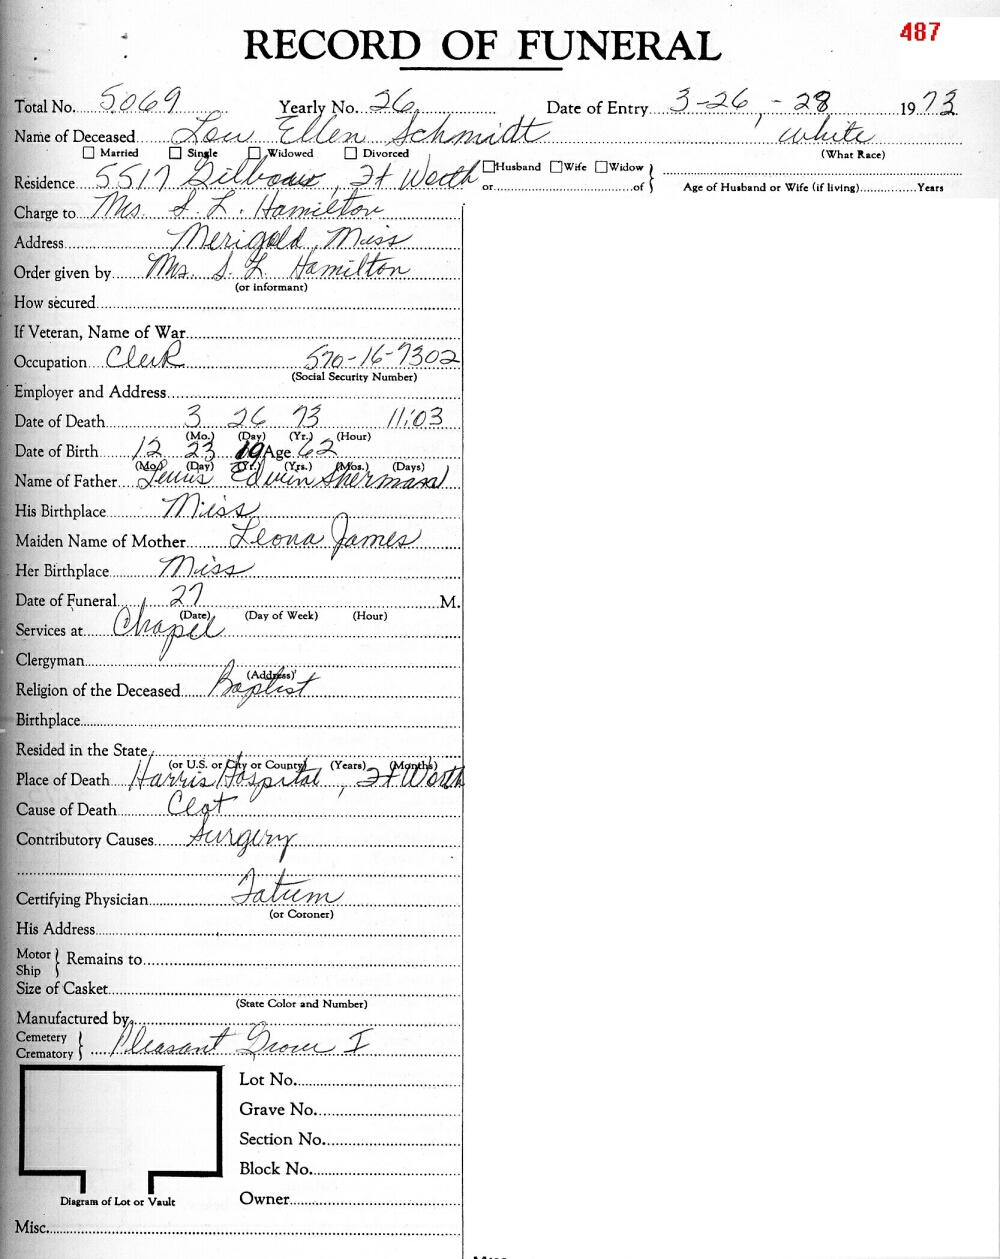 487
RECORD OF FUNERAL
Total No. 5069 Yearly No. 26 Date of Entry 3-26, - 28 1973
Name of Deceased Lou Ellen Schmidt white
Married Single Widowed Divorced (What Race)
Residence 5517 Ft Worth Husband Wife Widow
or of Age of Husband or Wife (if living) Years
Charge to Mrs. S. L. Hamilton
Address Merigold, Miss
Order given by Mrs. S. L Hamilton
(or informant)
How secured
If Veteran, Name of War
Occupation Clerk 570-16-7302
(Social Security Number)
Employer and Address
Date of Death 3 26 73 11:03
(Mo.) (Day) (Yr.) (Hour)
Date of Birth 12 23 Age 62
(Mo.) (Day) (Yr.) (Yrs.) (Mos.) (Days)
Name of Father Edwin Sherman
His Birthplace Miss
Maiden Name of Mother Leona James
Her Birthplace Miss
Date of Funeral 27 M.
(Date) (Day of Week) (Hour)
Services at Chapel
Clergyman
(Address)
Religion of the Deceased Baptist
Birthplace
Resided in the State
(or U.S. or City or County) (Years) (Months)
Place of Death Harris Hospital, Ft Worth
Cause of Death Clot
Contributory Causes Surgery
Certifying Physician Tatum
(or Coroner)
His Address
Motor
Ship Remains to
Size of Casket
(State Color and Number)
Manufactured by
Cemetery
Crematory Pleasant Grove I
Lot No.
Grave No.
Section No.
Block No.
Diagram of Lot or Vault Owner
Misc.